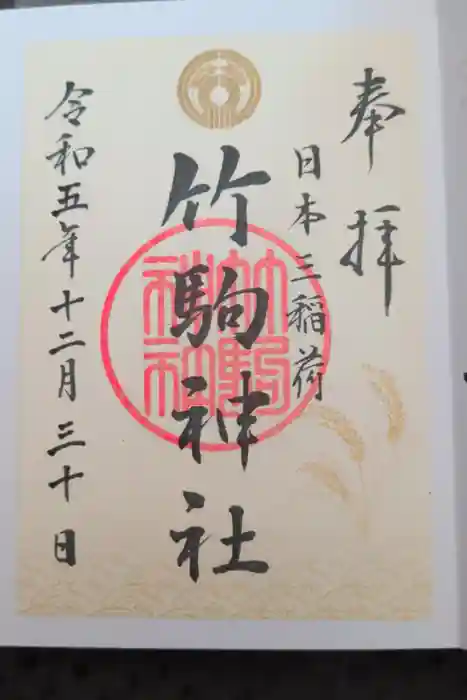 奉拝
日本三稲荷
竹駒神社
竹駒神社
令和五年十二月三十日